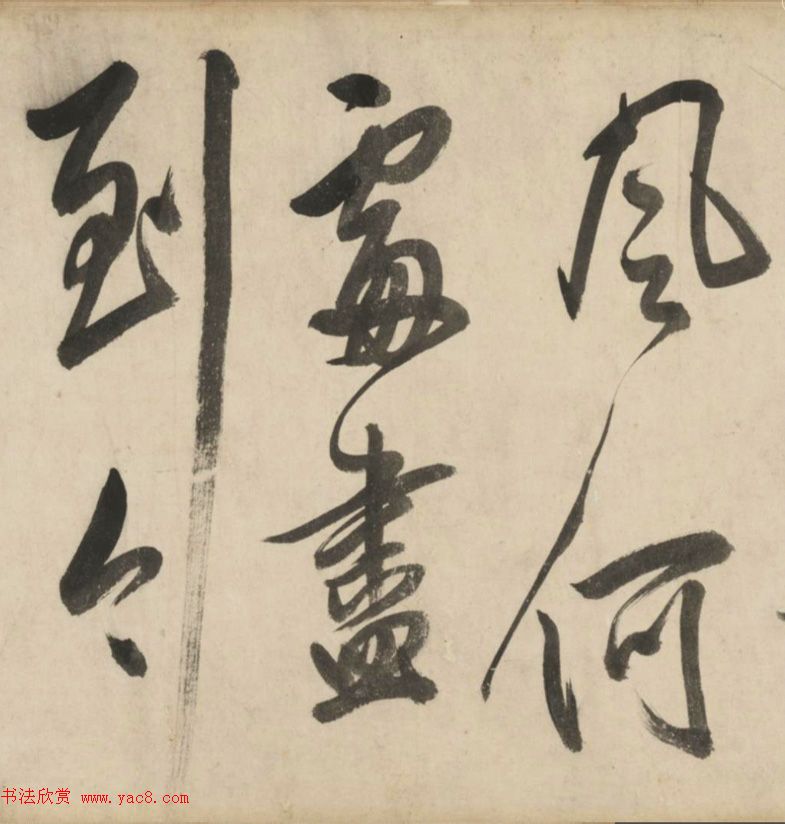 風何
處盡
到今
书法欣赏 www.yac8.com